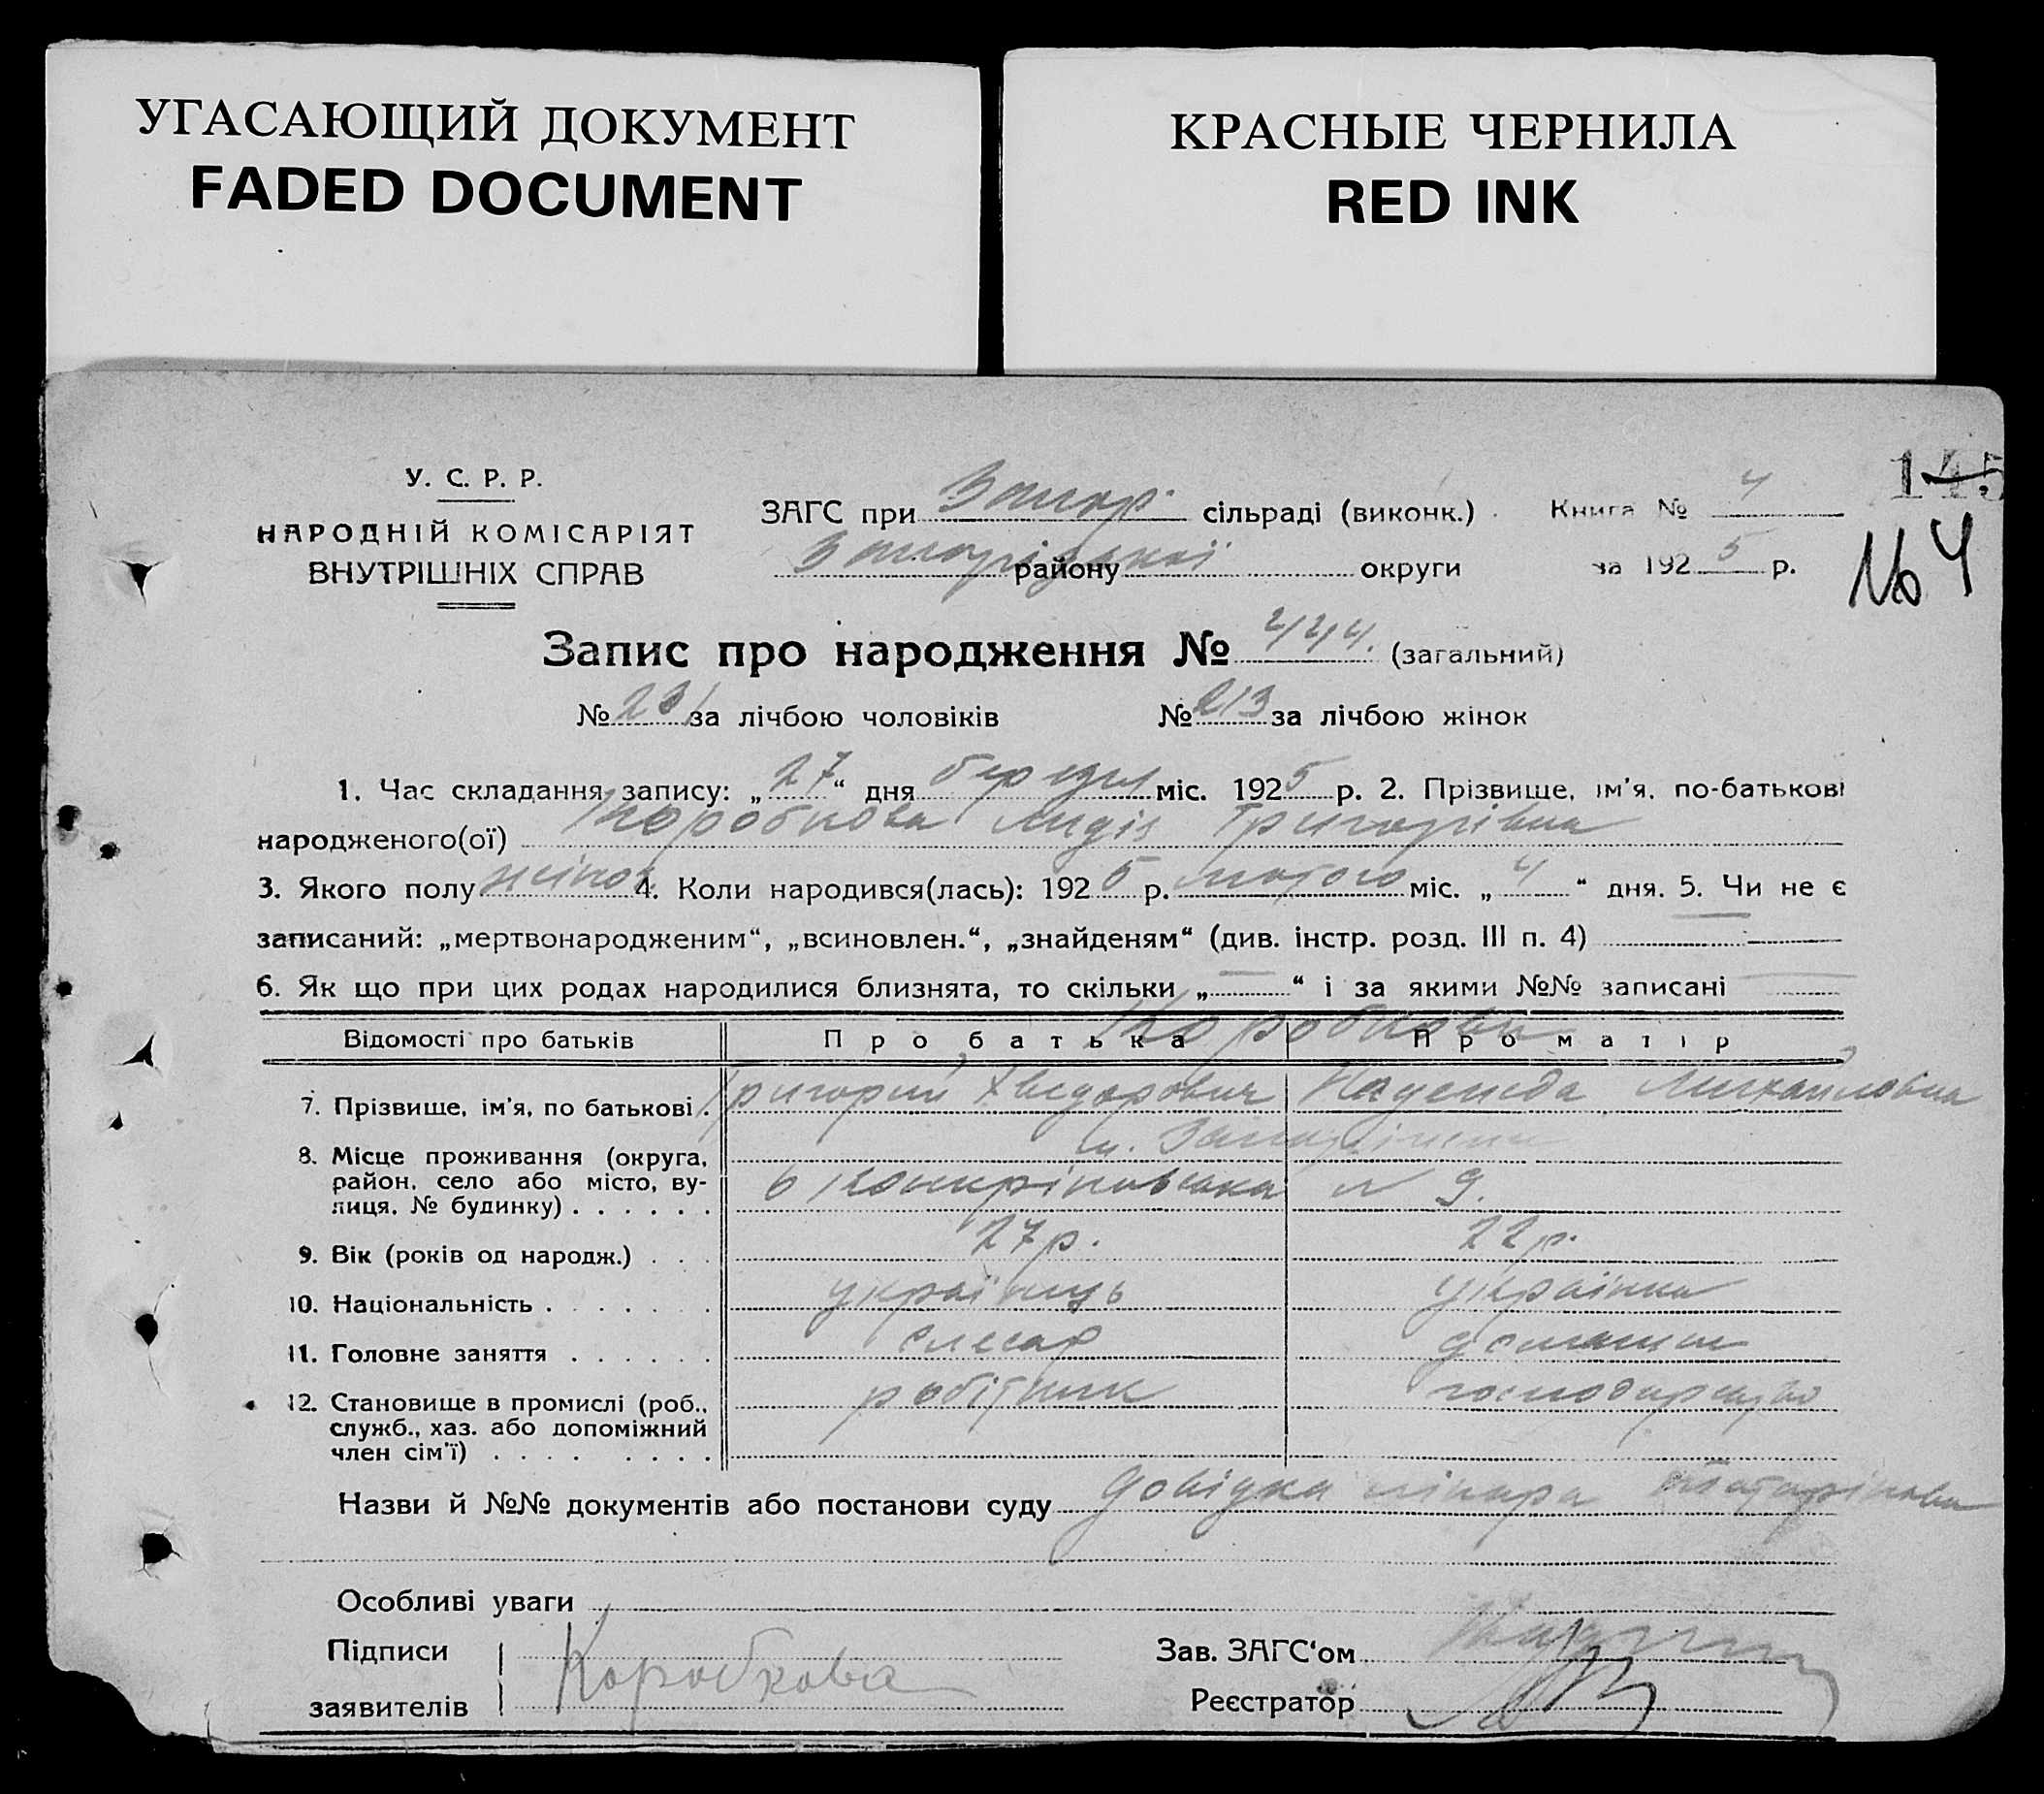 УГАСАЮЩИЙ ДОКУМЕНТ
FADED DOCUMENT
КРАСНЫЕ ЧЕРНИЛА
RED INK
145
У. С. Р. Р.
НАРОДНІЙ КОМІСАРІЯТ
ВНУТРІШНІХ СПРАВ
ЗАГС при Запор. сільраді (виконк.)
Запорізької району округи
Книга № 4
за 1925 р.
№ 4
Запис про народження № 444. (загальний)
№ 231 за лічбою чоловіків № 213 за лічбою жінок
1. Час складання запису: „27“ дня березня міс. 1925 р. 2. Прізвище, ім'я, по-батькові
народженого(ої) Коробкова Лидія Григорівна
3. Якого полу жіноч 4. Коли народився(лась): 1925 р. лютого міс. „4“ дня. 5. Чи не є
записаний: „мертвонародженим“, „всиновлен.“, „знайденям“ (див. інстр. розд. III п. 4) —
6. Як що при цих родах народилися близнята, то скільки „—“ і за якими №№ записані —
Коробкови
Відомості про батьків Про батька Про матір
7. Прізвище, ім'я, по батькові . Григорий Хведорович Надежда Михайловна
8. Місце проживання (округа, район, село або місто, вулиця, № будинку) . . . . . . м.
6 № 9.
9. Вік (років од народж.) . . . 27 р. 22 р.
10. Національність . . . . . . . українець українка
11. Головне заняття . . . . . . слесар домашнє
12. Становище в промислі (роб., служб., хаз. або допоміжний член сім'ї) . . . . . . . . робітник господарство
Назви й №№ документів або постанови суду довідка лікаря
Особливі уваги
Підписи
заявителів Коробкова
Зав. ЗАГС'ом
Реєстратор